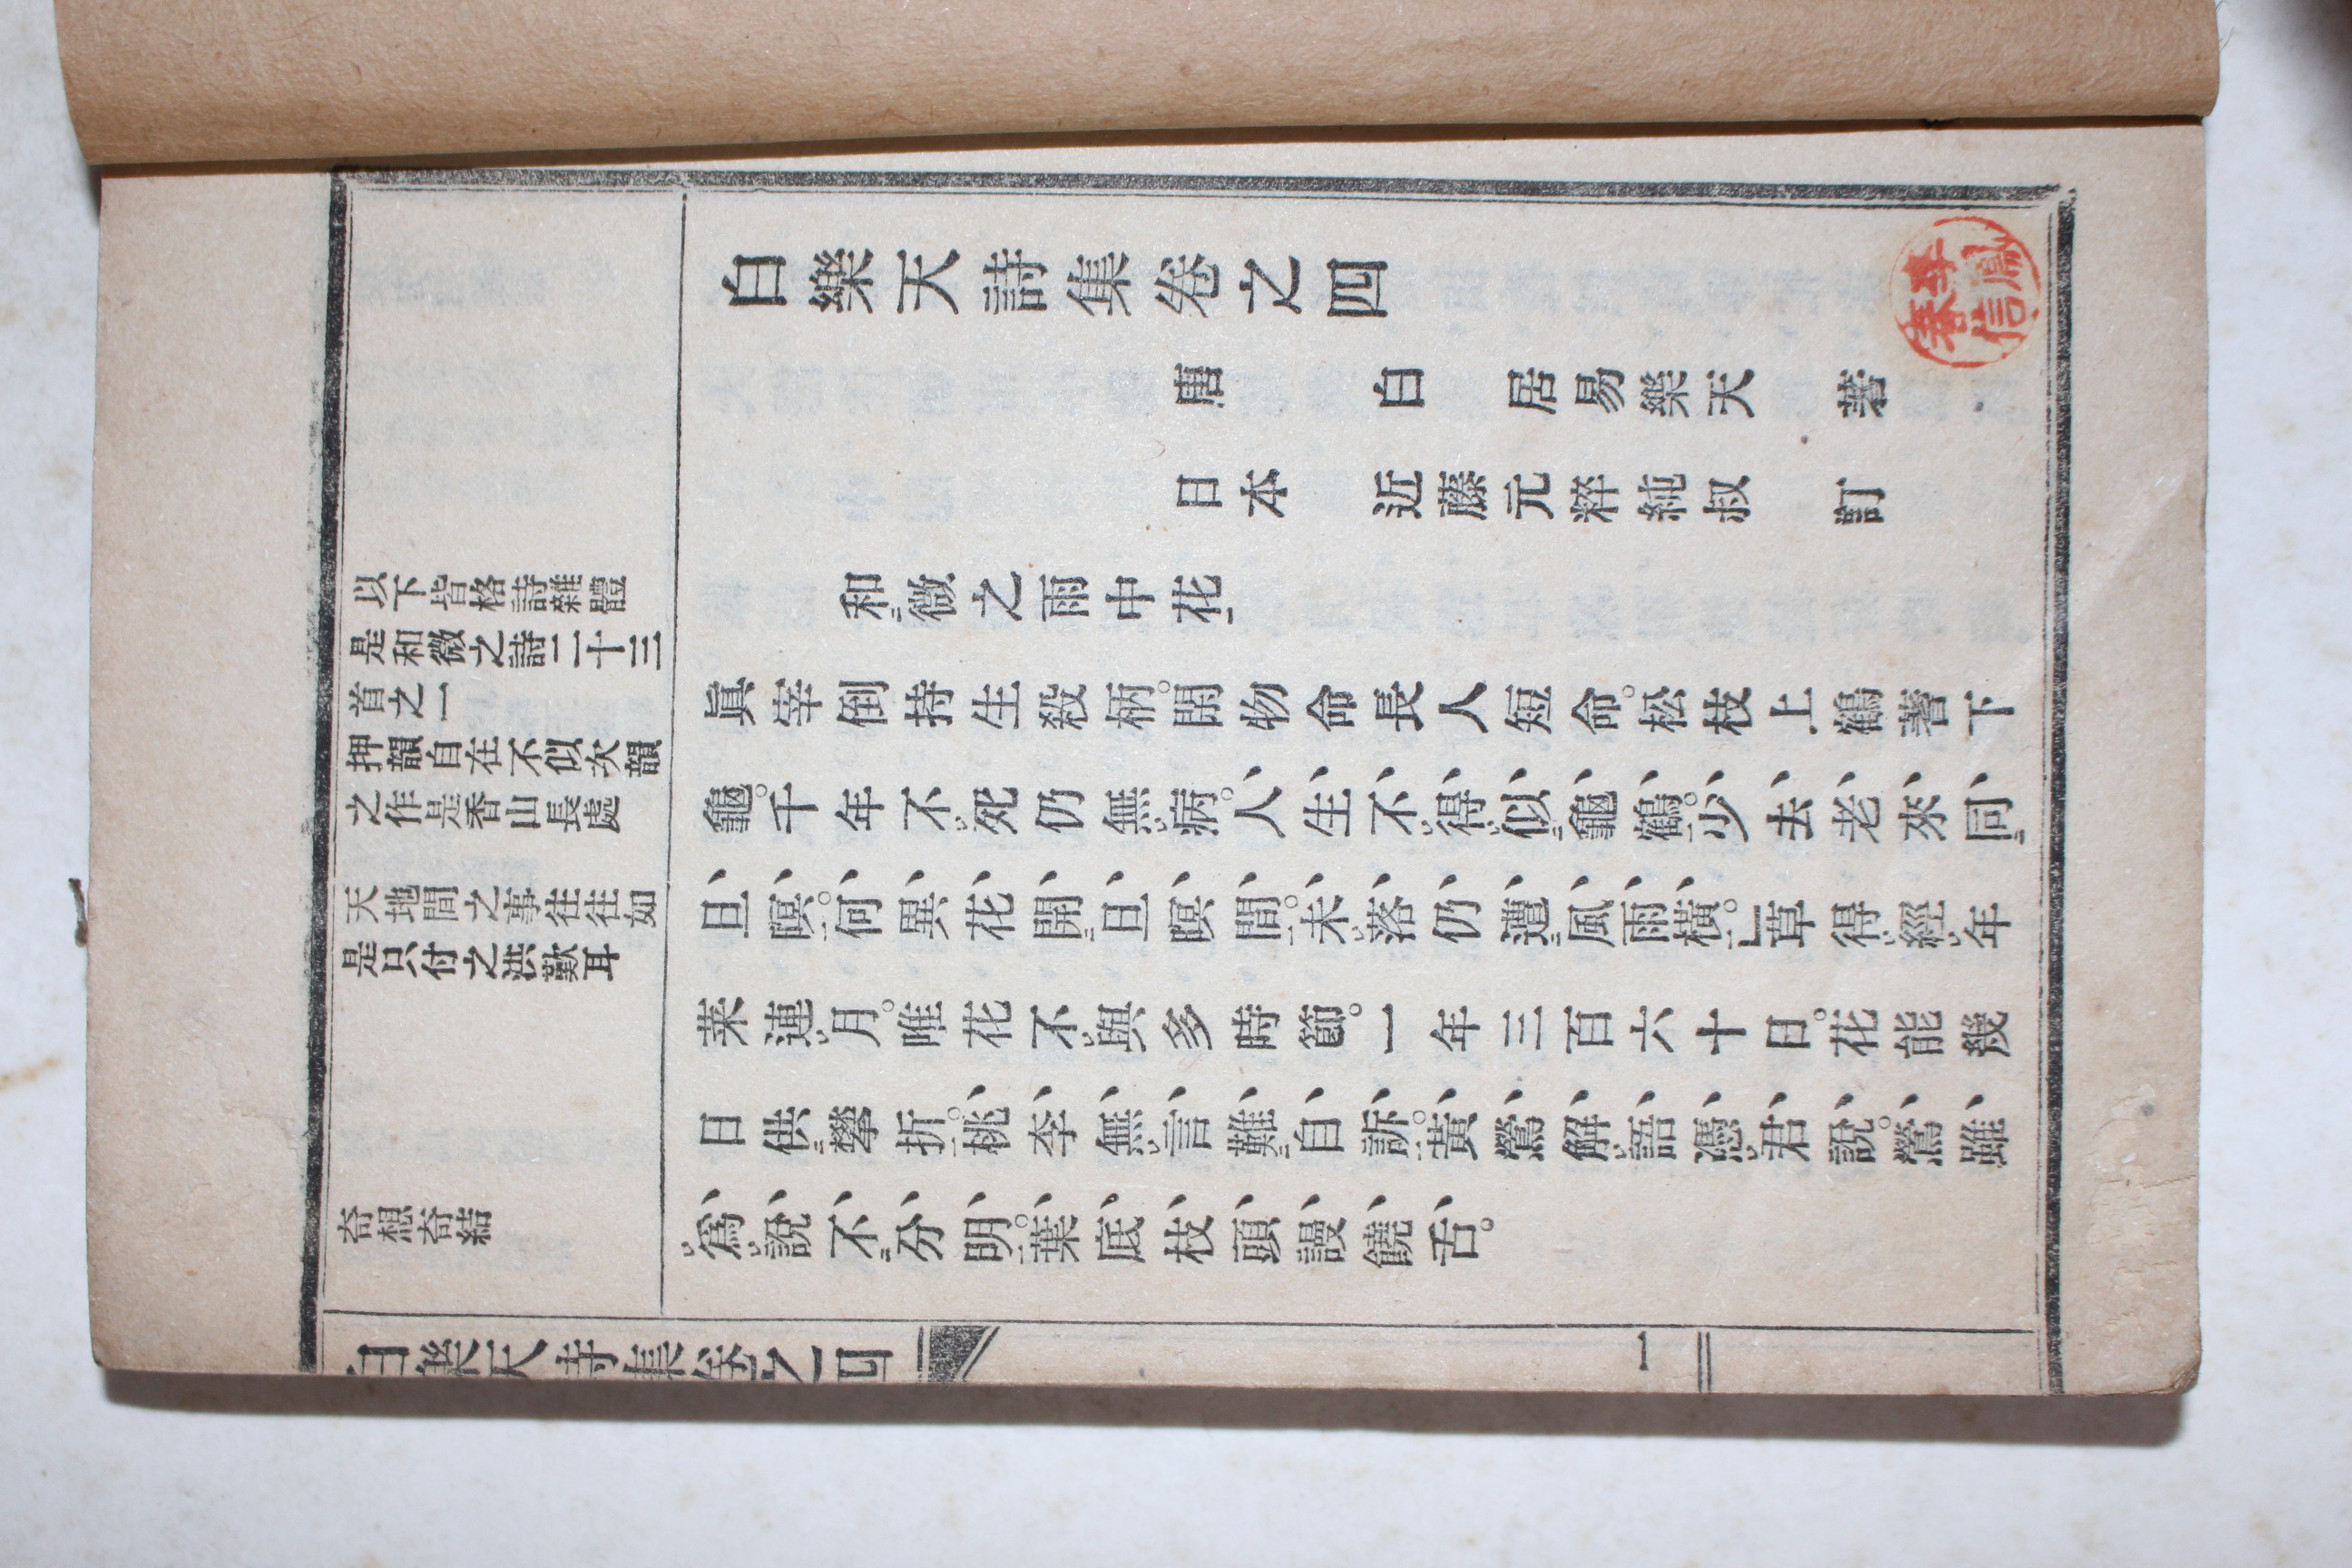 白樂天詩集卷之四
唐 白 居易樂天 著
日本 近藤元粹純叔 訂
和微之雨中花
眞宰倒持生殺柄。閒物命長人短命。松枝上鶴蓍下
龜。千年不死仍無病。人生不得似龜鶴。少去老來同
旦暝。何異花開旦暝間。未落仍遭風雨橫。草得經年
菜連月。唯花不與多時節。一年三百六十日。花能幾
日供攀折。桃李無言難自訴。黃鶯解語憑君說。鶯雖
爲說不分明。葉底枝頭謾饒舌。
以下皆格詩雜體
是和微之詩二十三
首之一
押韻自在不似次韻
之作是香山長處
天地間之事往往如
是只付之洪歎耳
奇想奇結
白樂天詩集卷之四
一